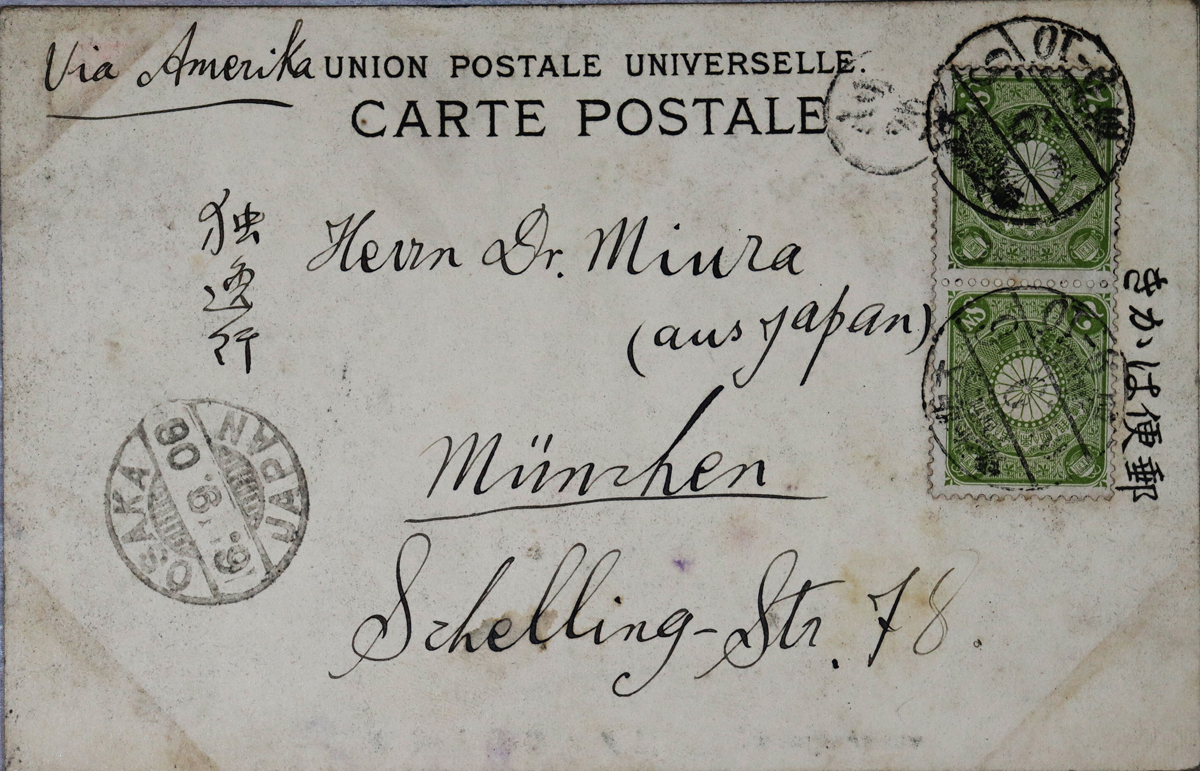 Via Amerika
UNION POSTALE UNIVERSELLE.
CARTE POSTALE
独逸行
Herrn Dr. Miura
(aus Japan)
München
Schelling-Str. 78.
きかは便郵
OSAKA
JAPAN